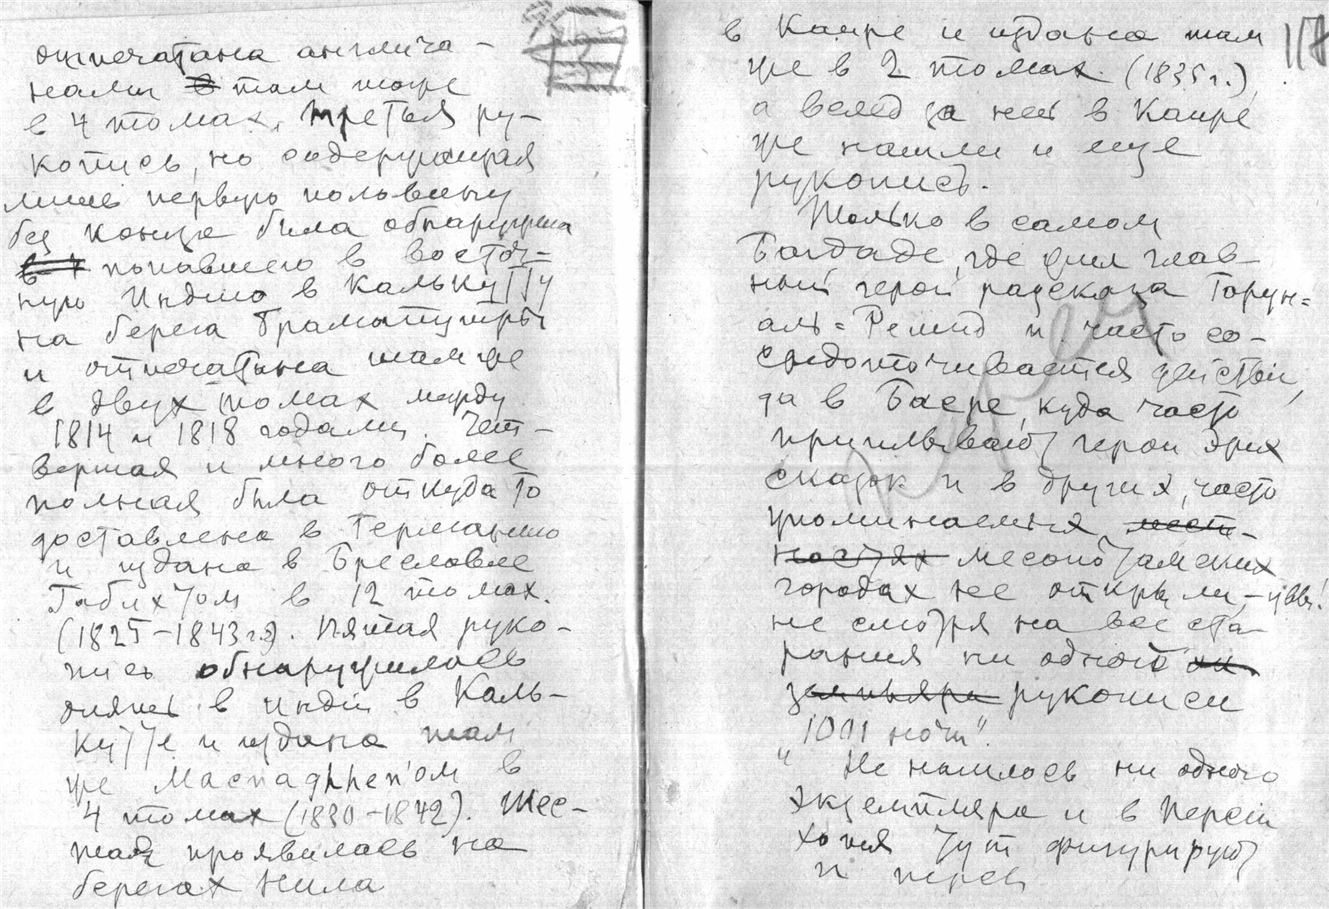 отпечатана англича-
нами в там тоже
в 4 томах. Третья ру-
копись, но содержащая
лишь первую половину
без конца была обнаружена
попавшего в восточ-
ную Индию в Калькутту
на берега Брамапутры
и отпечатана там же
в двух томах между
1814 и 1818 годами. Чет-
вертая и много более
полная была откуда то
доставлена в Германию
и издана в Бреславле
Габихтом в 12 томах.
(1825-1843 гг). Пятая руко-
пись обнаружилась
опять в Индии в Каль-
кутте и издана там
же в
4 томах (1830-1842). Шес-
тая проявилась на
берегах Нила
117
в Каире и издана там
же в 2 томах (1835 г.),
а вслед за ней в Каире
же нашли и еще
рукопись.
Только в самом
Багдаде, где жил глав-
ный герой рассказа Гарун-
аль-Решид и часто со-
средоточивается действие,
да в Басре, куда часто
приплывают герои этих
сказок и в других, часто
упоминаемых мест-
ностях месопотамских
городах не открыли - увы!
не смотря на все ста-
рания ни одной
экземпляра рукописи
"1001 ночи".
Не нашлось ни одного
экземпляра и в Персии
хотя тут фигурируют
и персы